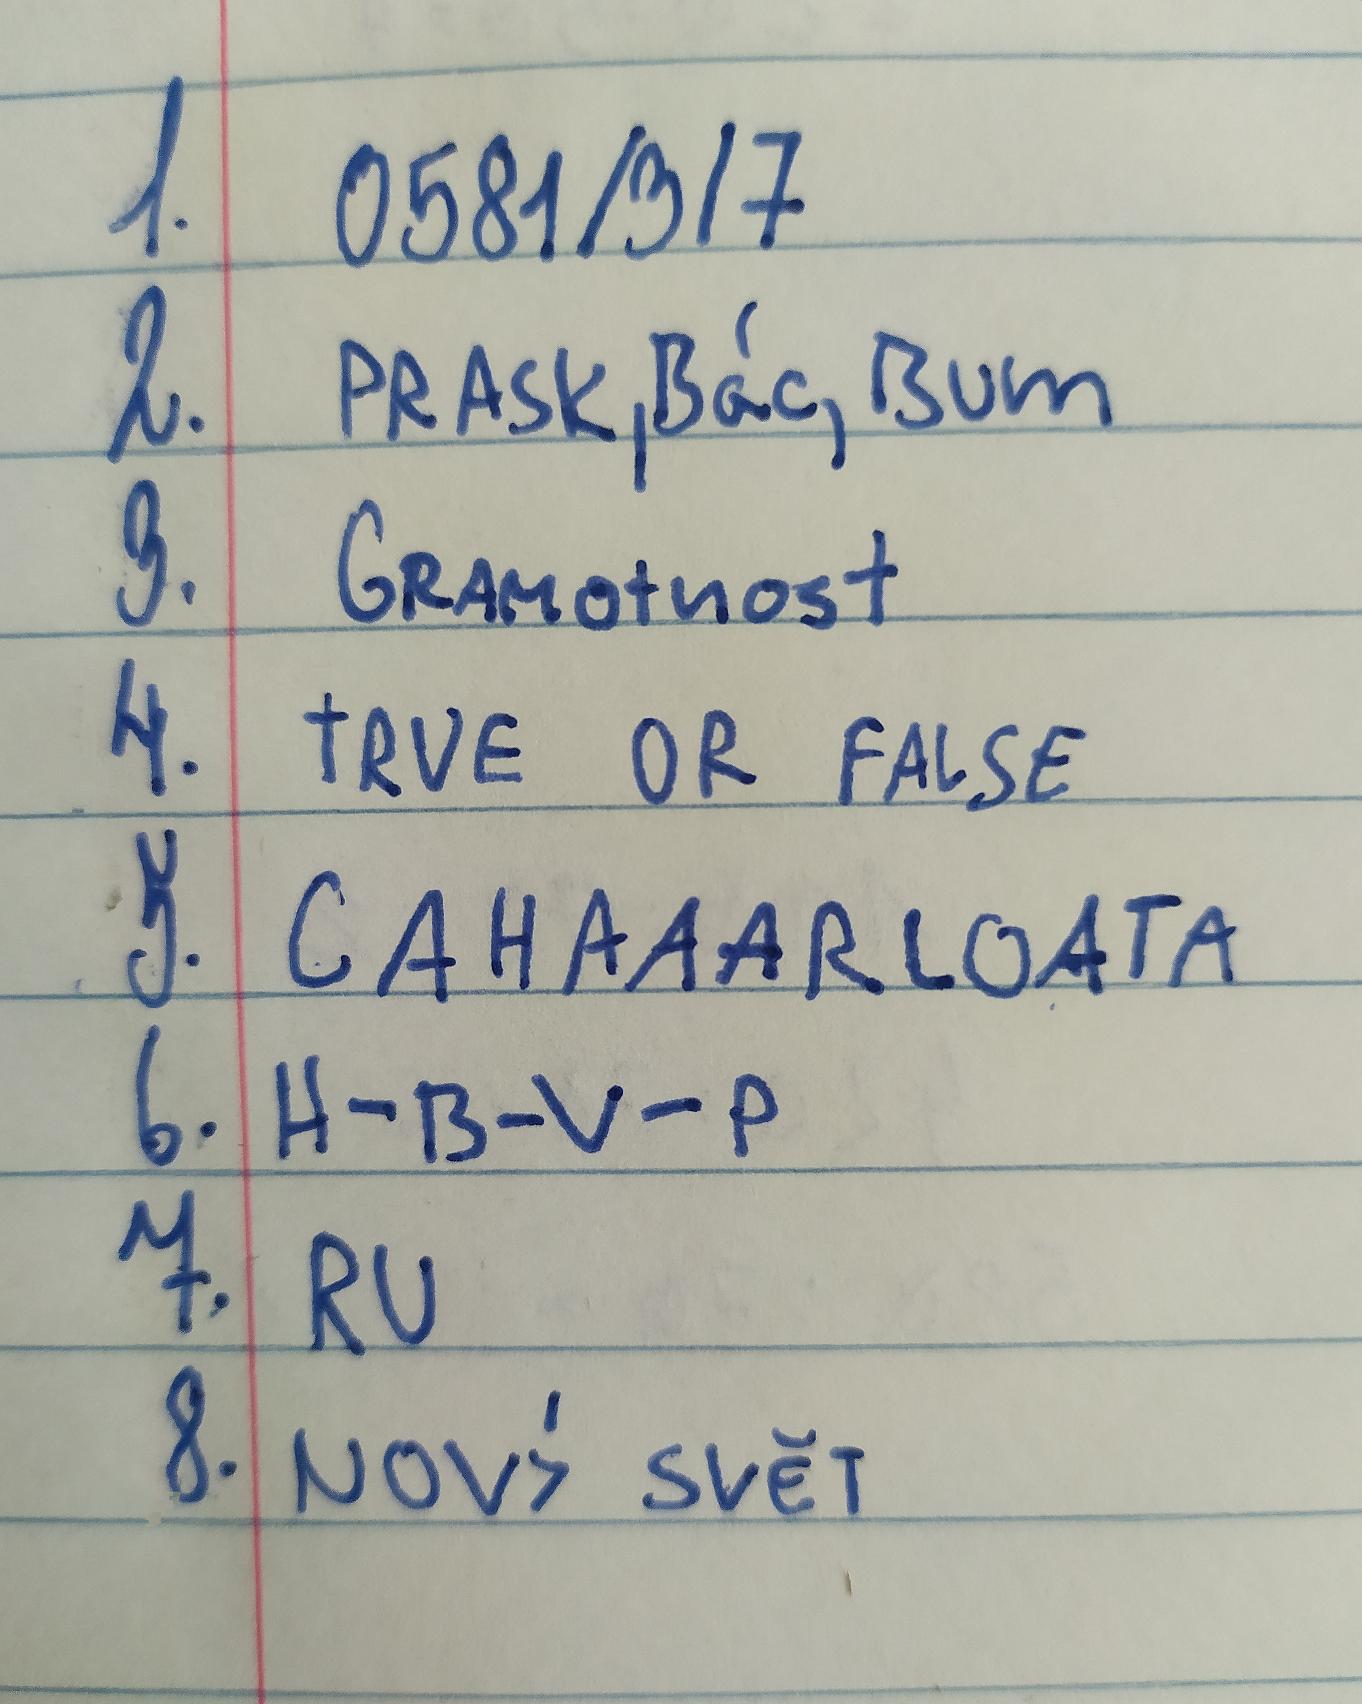 1. 0581/3/7
2. PRASK, Bác, Bum
3. GRAMOtnost
4. TRUE OR FALSE
5. CAHAAARLOATA
6. H-B-V-P
7. RU
8. NOVÝ SVĚT